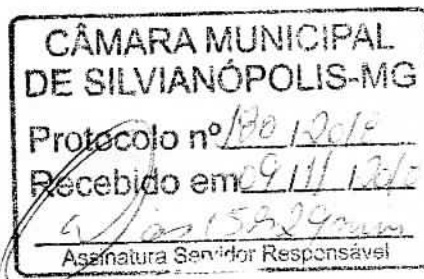 CÂMARA MUNICIPAL
DE SILVIANÓPOLIS-MG
Protocolo nº 180 / 2018
Recebido em 09 / 11 /
às 15h29min
Assinatura Servidor Responsável